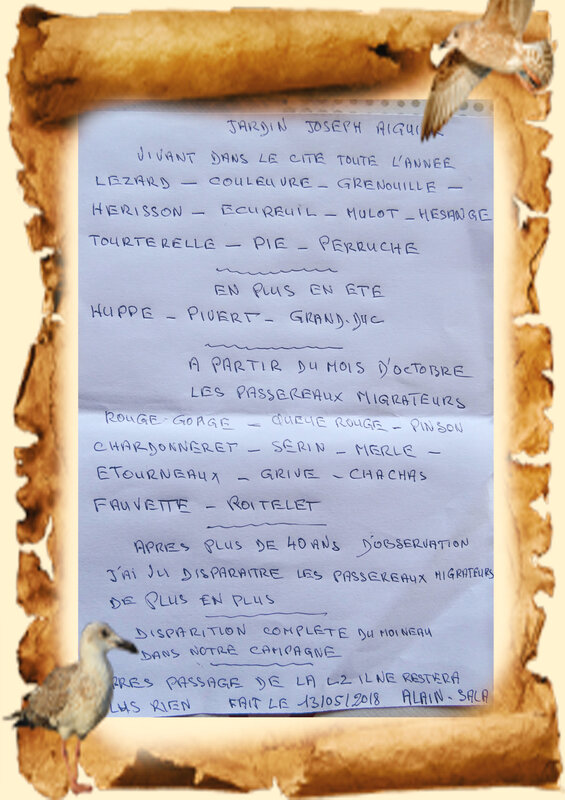 JARDIN JOSEPH AIGUIER
VIVANT DANS LE CITE TOUTE L'ANNEE
LEZARD — COULEUVRE — GRENOUILLE —
HERISSON — ECUREUIL — MULOT — MESANGE
TOURTERELLE — PIE — PERRUCHE
EN PLUS EN ETE
HUPPE — PIVERT — GRAND-DUC
A PARTIR DU MOIS D'OCTOBRE
LES PASSEREAUX MIGRATEURS
ROUGE-GORGE — QUEUE ROUGE — PINSON
CHARDONNERET — SERIN — MERLE —
ETOURNEAUX — GRIVE — CHACHAS
FAUVETTE — ROITELET
APRES PLUS DE 40 ANS D'OBSERVATION
J'AI VU DISPARAITRE LES PASSEREAUX MIGRATEURS
DE PLUS EN PLUS
DISPARITION COMPLETE DU MOINEAU
DANS NOTRE CAMPAGNE
PRES PASSAGE DE LA L2 IL NE RESTERA
LUS RIEN FAIT LE 13/05/2018 ALAIN-SALA